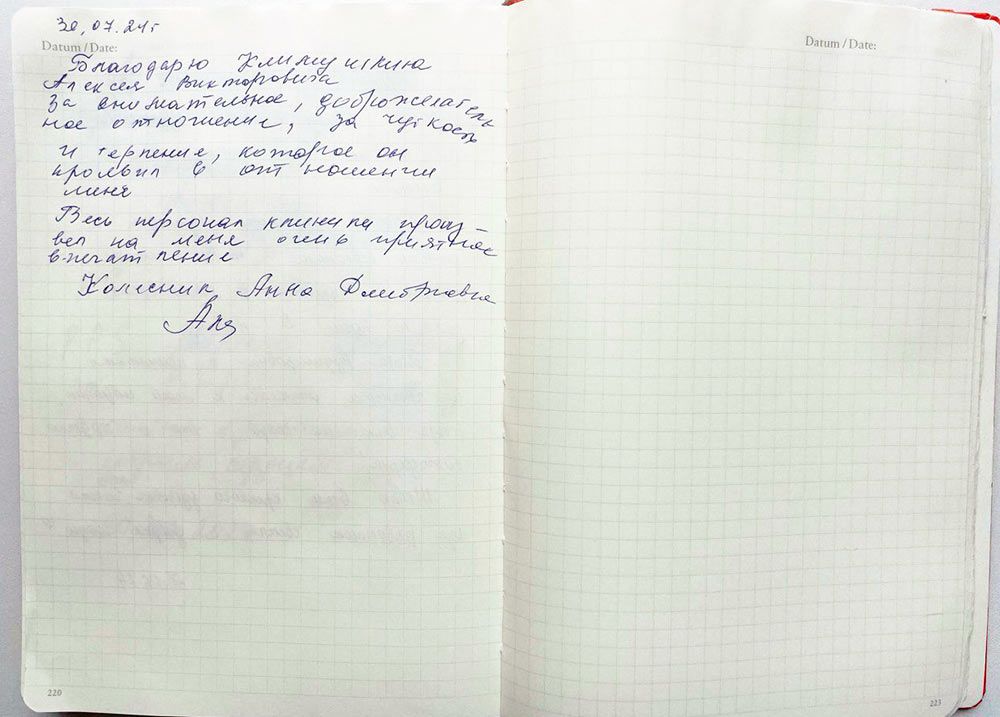 30,07.24г
Datum / Date:
Благодарю Климушкина
Алексея Викторовича
За внимательное, доброжелатель
ное отношение, за чуткость
и терпение, которое он
проявил в отношении
меня
Весь персонал клиники произ-
вел на меня очень приятное
впечатление
Колесник Анна Дмитриевна
220
Datum / Date:
223